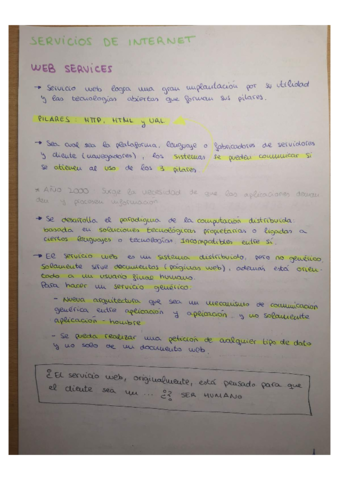 SERVICIOS DE INTERNET
WEB SERVICES
→ Servicio web logra una gran implantación por su utilidad
y las tecnologías abiertas que forman sus pilares.
PILARES - HTTP, HTML y URL
→ Sea cual sea la plataforma, lenguaje o fabricadores de servidores
y cliente (navegadores), los sistemas se puedan comunicar si
se atienen al uso de los 3 pilares.
→ Año 2000 Surge la necesidad de que las aplicaciones
→ Se desarrolla el paradigma de la computación distribuida
basando en soluciones tecnológicas propietarias o ligadas a
ciertos lenguajes o tecnologías. Incompatibles entre sí.
→ El servicio web es un sistema distribuido, pero no genérico
solamente sirve documentos (páginas web), además está orien-
tado a un usuario final humano.
Para hacer un servicio genérico:
- Nueva arquitectura que sea un mecanismo de comunicación
genérica entre aplicación y aplicación, y no solamente
aplicación - hombre.
- Se pueda realizar una petición de cualquier tipo de dato
y no solo de un documento web
¿El servicio web, originalmente, está pensado para que
el cliente sea un ... ? SER HUMANO